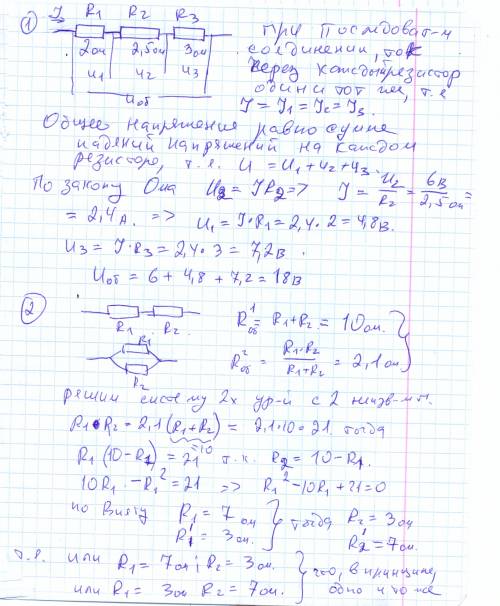 ① I R₁ R₂ R₃
2ом 2,5ом 3ом
u₁ u₂ u₃
uоб
При последоват-м
соединении, ток
через каждый резистор
один и тот же, т.е
I = I₁ = I₂ = I₃.
Общее напряжение равно сумме
падений напряжений на каждом
резисторе, т.е. U = U₁ + U₂ + U₃.
По закону Ома U₂ = IR₂ => I = U₂/R₂ = 6В/2,5ом =
= 2,4А. => U₁ = I·R₁ = 2,4·2 = 4,8В.
U₃ = I·R₃ = 2,4·3 = 7,2В.
Uоб = 6 + 4,8 + 7,2 = 18В
②
R₁ R₂
R¹об = R₁+R₂ = 10ом.
R₁
R₂
R²об = R₁·R₂/R₁+R₂ = 2,1ом
решим систему 2х ур-й с 2 неизв-ми.
R₁·R₂ = 2,1(R₁+R₂) = 2,1·10 = 21. тогда
=10
R₁(10-R₁) = 21 т.к. R₂ = 10-R₁.
10R₁ - R₁² = 21 => R₁² - 10R₁ + 21 = 0
по Виету R₁ = 7ом тогда R₂ = 3ом
R₁' = 3ом. R₂ = 7ом.
т.е. или R₁ = 7ом; R₂ = 3ом. что, в принципе,
или R₁ = 3ом R₂ = 7ом. одно и то же